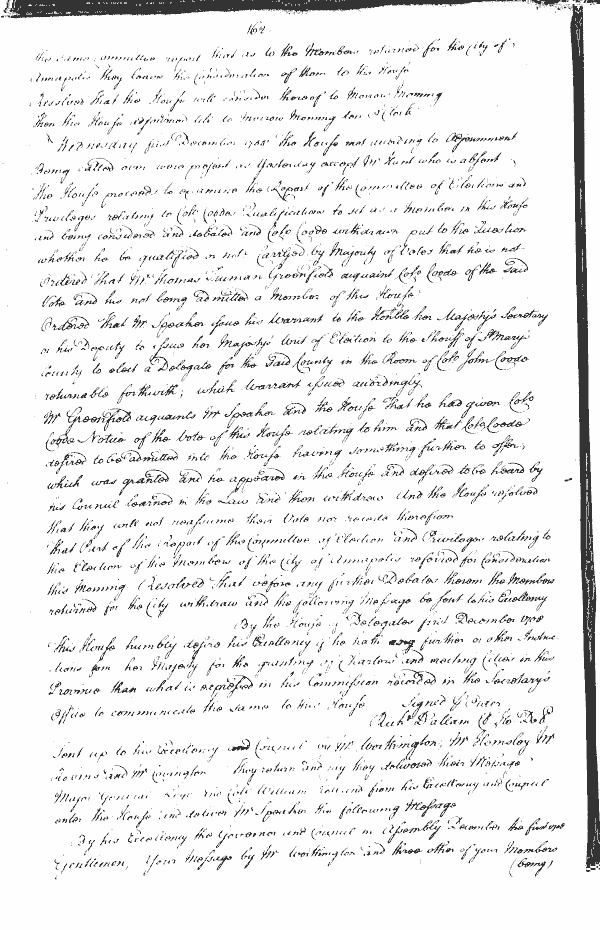 162
The same Committee report that as to the Members returned for the City of
Annapolis they leave the Consideration of them to this House
Resolved that the House will consider thereof to Morrow Morning
Then the House adjourned till to Morrow Morning ten o'Clock
Wednesday first December 1708 the House met according to Adjournment
Being Called over were present as Yesterday except Mr Hunt who is absent
The House proceeds to examine the Report of the Committee of Elections and
Priviledges relating to Colo Coodes Qualifications to sit as a Member in this House
and being considered and debated and Colo Coode withdrawn put to the Question
whether he be qualified or not Carryed by Majority of Votes that he is not
Ordered that Mr Thomas Truman Greenfield acquaint Colo Coode of the Said
Vote and his not being admitted a Member of this House
Ordered That Mr Speaker issue his Warrant to the Honble her Majestys Secretary
or his Deputy to issue her Majestys Writ of Election to the Sheriff of St Marys
County to elect a Delegate for the Said County in the Room of Colo John Coode
returnable forthwith; which Warrant issued accordingly.
Mr Greenfield acquaints Mr Speaker and the House That he had given Colo
Coode Notice of the Vote of this House relating to him and that Colo Coode
desired to be admitted into the House having something further to offer,
which was granted and he appeared in the House and desired to be heard by
his Council learned in the Law and then withdrew And the House resolved
that they will not reassume their Vote nor recede therefrom
That Part of the Report of the Committee of Election and Priviledges relating to
the Election of the Members of the City of Annapolis referred for Consideration
this Morning Resolved That before any further Debates thereon the Members
returned for the City withdraw and the following Message be sent to his Excellency
By the House of Delegates first December 1708
This House humbly desire his Excellency if he hath any further or other Instruc
tions from her Majesty for the granting of Charters and erecting Cities in this
Province than what is expressed in his Commission recorded in the Secretary's
Office to communicate the same to his House Signed p Order
Richd Dallam Cl Ho Del
Sent up to his Excellency and Council by Mr Worthington, Mr Hemsley Mr
and Mr Covington They return and say they delivered their Message
Major General and Colo William Holland from his Excellency and Council
enter the House and deliver Mr Speaker the following Message
By his Excellency the Governor and Council in Assembly December the first 1708
Gentlemen, Your Message by Mr Worthington and three other of your Members
(being)